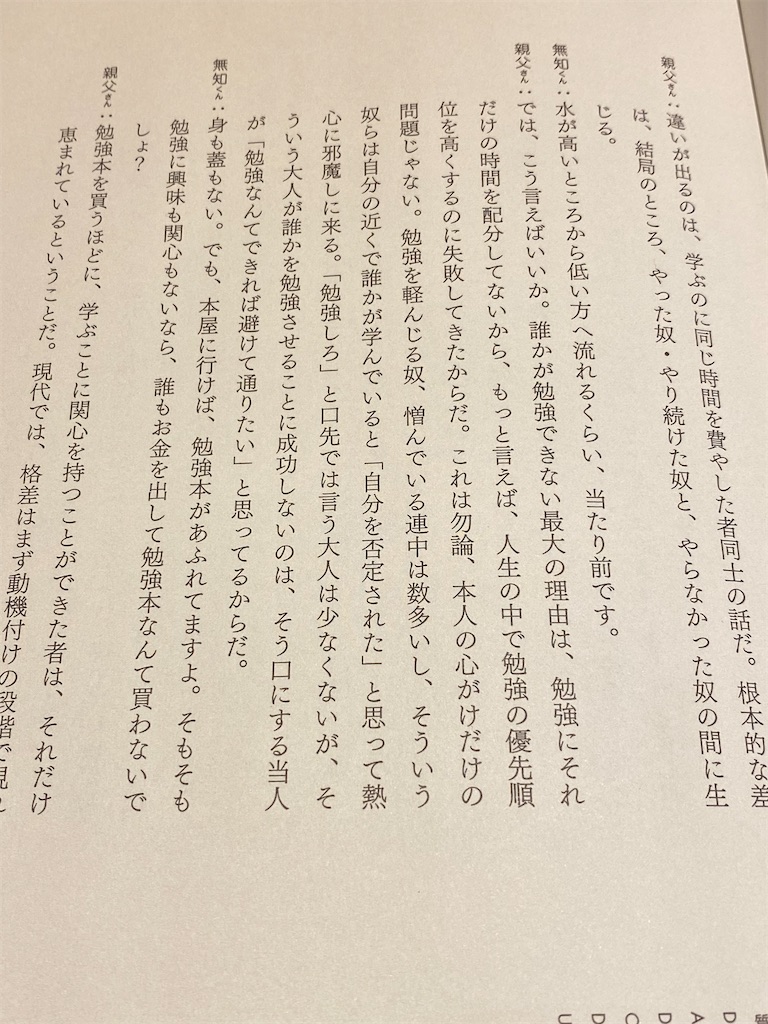 親父さん：違いが出るのは、学ぶのに同じ時間を費やした者同士の話だ。根本的な差
は、結局のところ、やった奴・やり続けた奴と、やらなかった奴の間に生
じる。
無知くん：水が高いところから低い方へ流れるくらい、当たり前です。
親父さん：では、こう言えばいいか。誰かが勉強できない最大の理由は、勉強にそれ
だけの時間を配分してないから、もっと言えば、人生の中で勉強の優先順
位を高くするのに失敗してきたからだ。これは勿論、本人の心がけだけの
問題じゃない。勉強を軽んじる奴、憎んでいる連中は数多いし、そういう
奴らは自分の近くで誰かが学んでいると「自分を否定された」と思って熱
心に邪魔しに来る。「勉強しろ」と口先では言う大人は少なくないが、そ
ういう大人が誰かを勉強させることに成功しないのは、そう口にする当人
が「勉強なんてできれば避けて通りたい」と思ってるからだ。
無知くん：身も蓋もない。でも、本屋に行けば、勉強本があふれてますよ。そもそも
勉強に興味も関心もないなら、誰もお金を出して勉強本なんて買わないで
しょ？
親父さん：勉強本を買うほどに、学ぶことに関心を持つことができた者は、それだけ
恵まれているということだ。現代では、格差はまず動機付けの段階で現れ